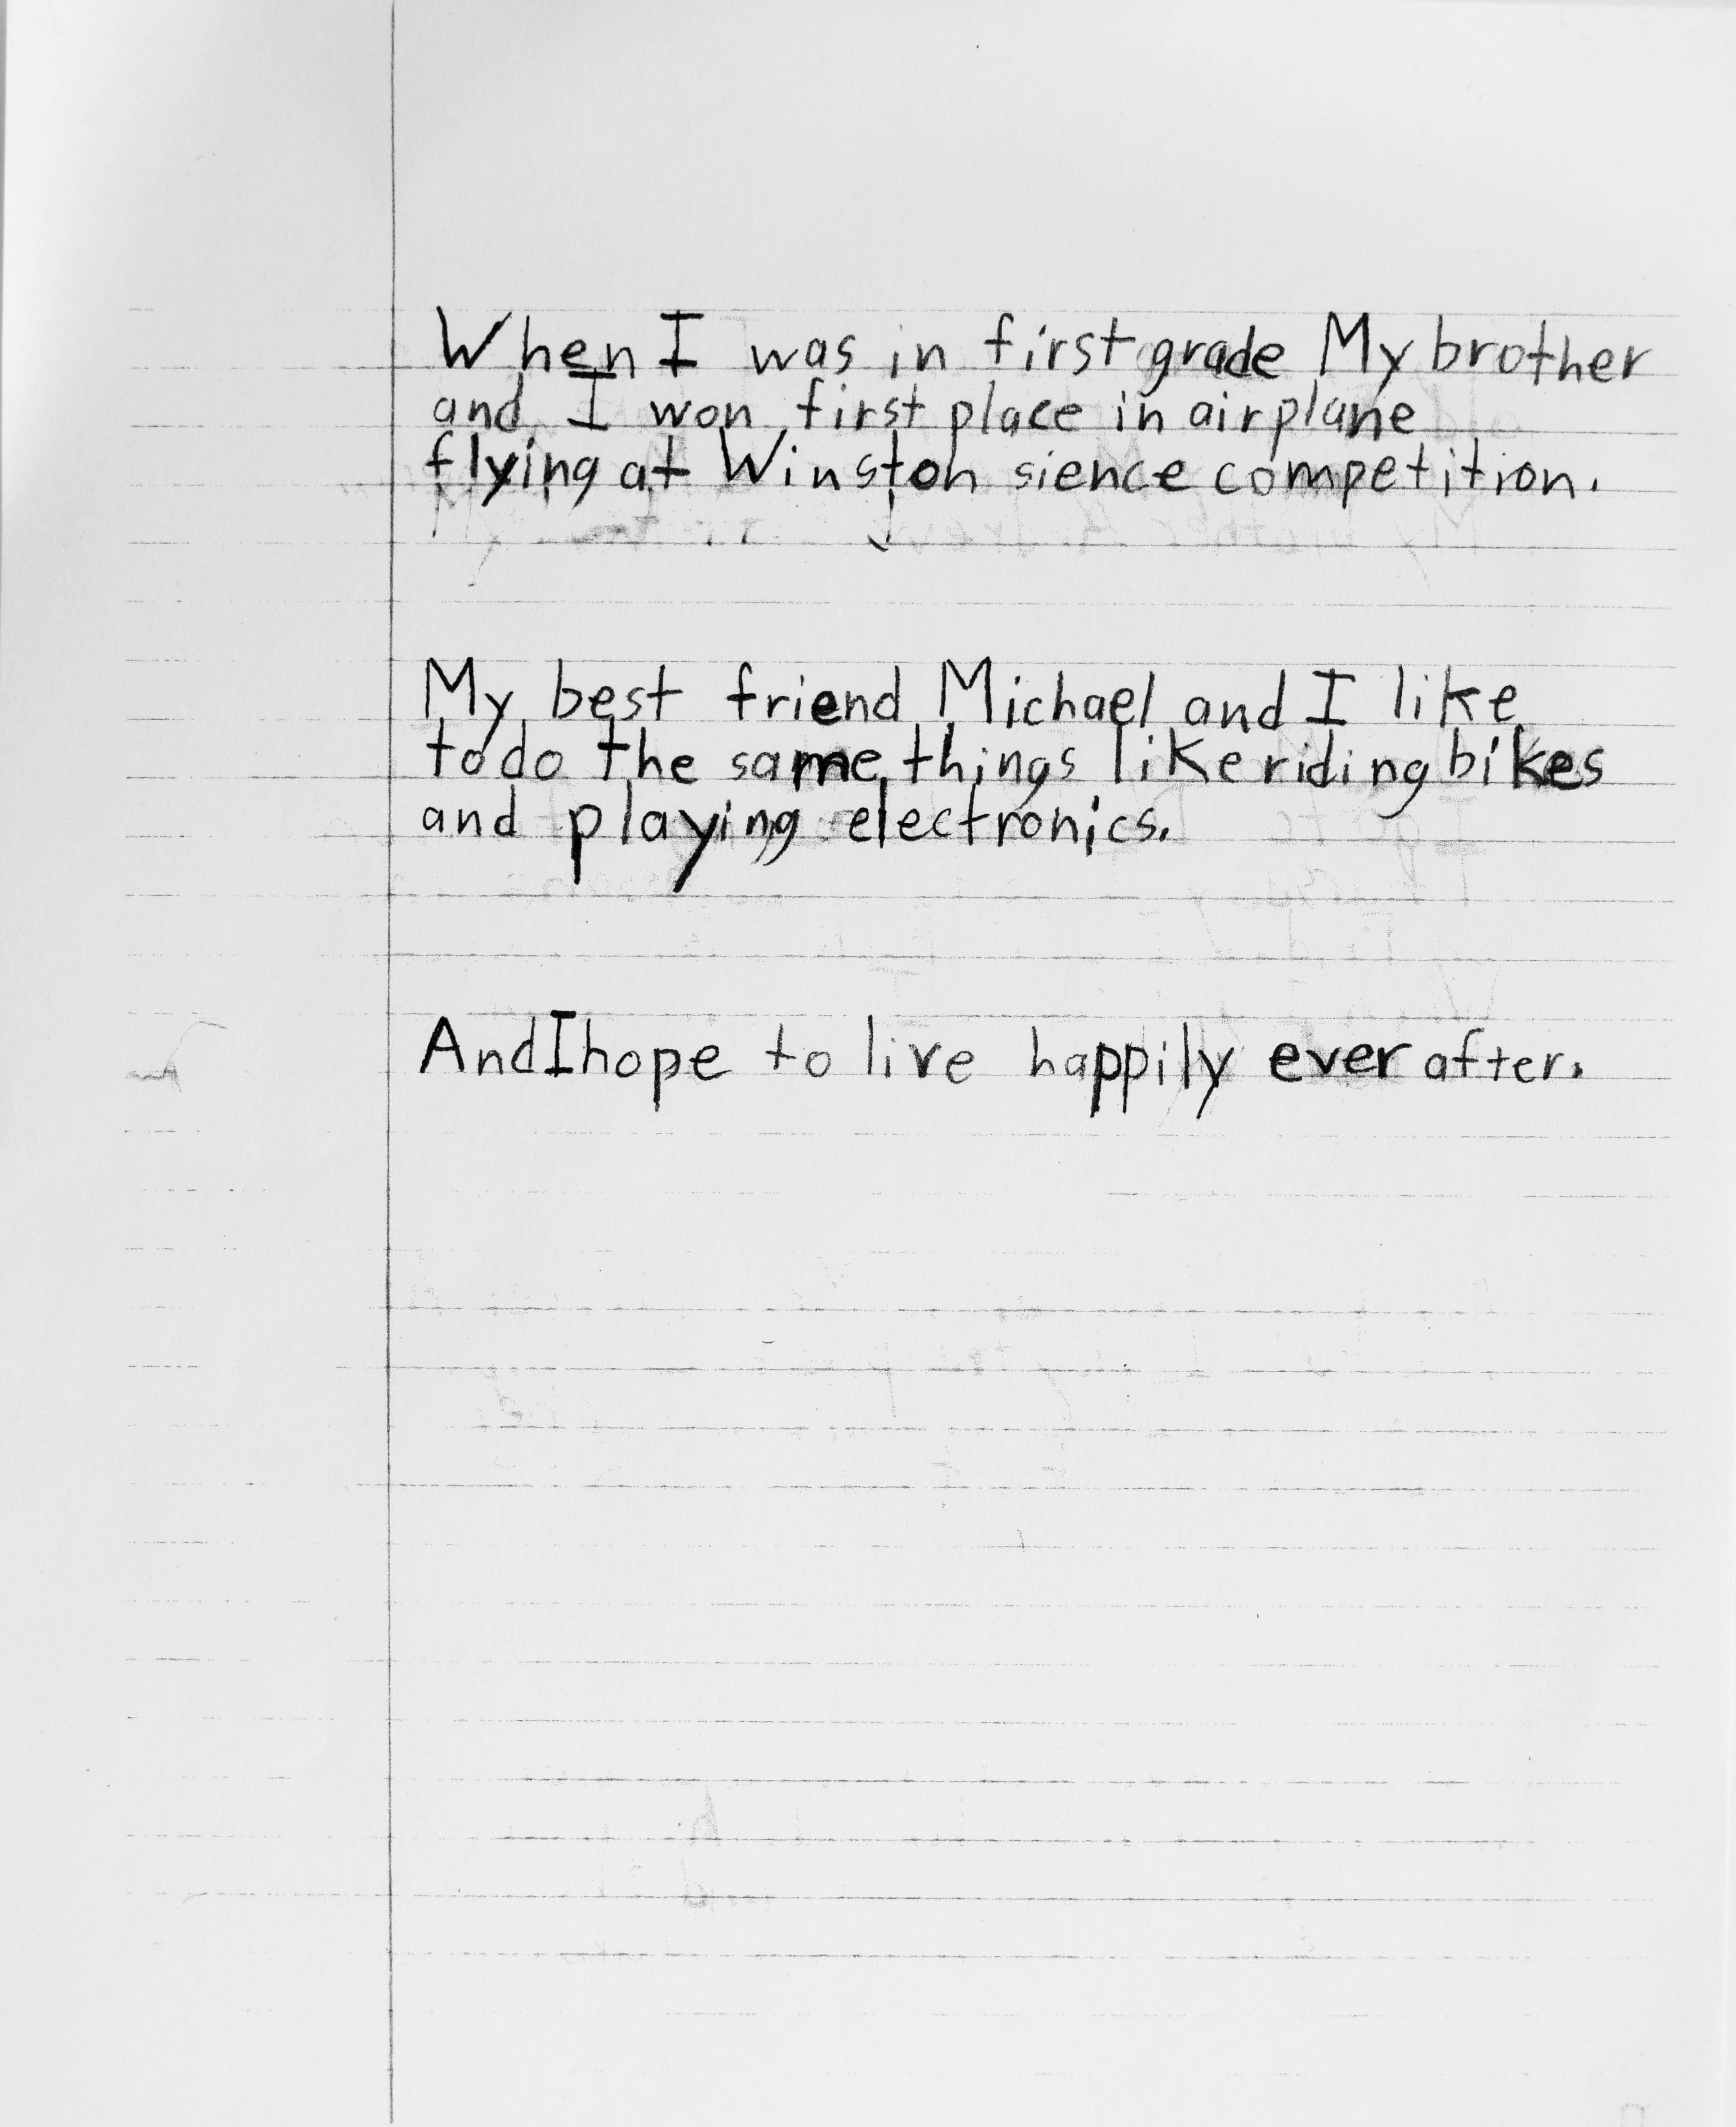 When I was in first grade My brother
and I won first place in airplane
flying at Winston sience competition.
My best friend Michael and I like
to do the same things like riding bikes
and playing electronics.
And I hope to live happily ever after.